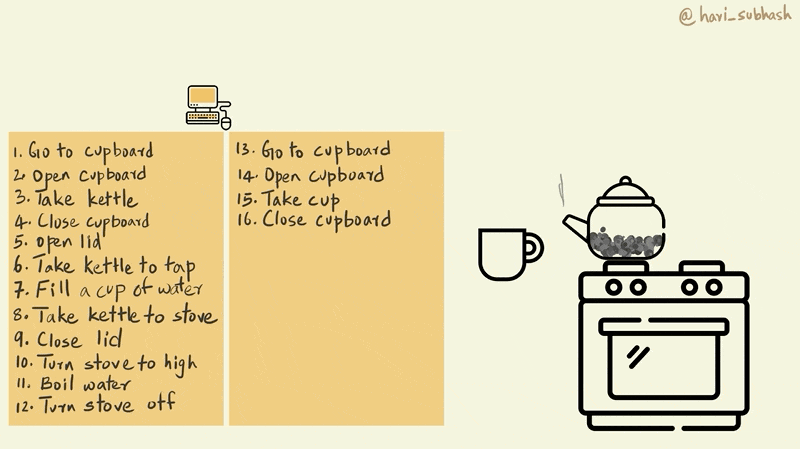 @hari_subhash
1. Go to cupboard
2. Open cupboard
3. Take kettle
4. Close cupboard
5. Open lid
6. Take kettle to tap
7. Fill a cup of water
8. Take kettle to stove
9. Close lid
10. Turn stove to high
11. Boil water
12. Turn stove off
13. Go to cupboard
14. Open cupboard
15. Take cup
16. Close cupboard